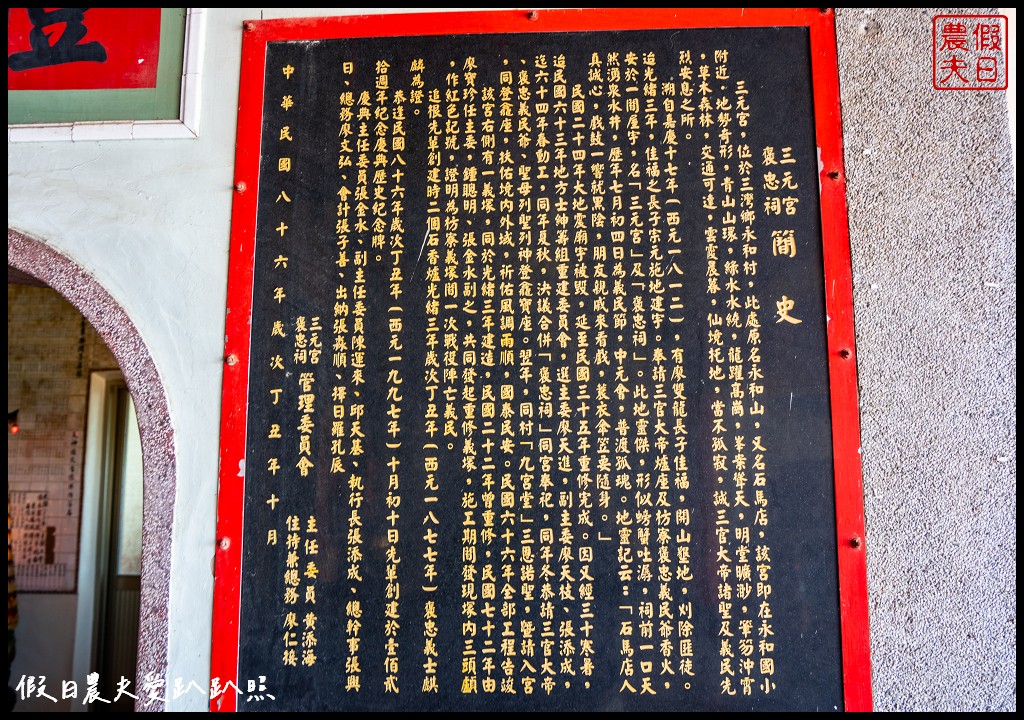 三元宮
褒忠祠
簡史
三元宮，位於三灣鄉永和村，此處原名永和山，又名石馬店，該宮即在永和國小
附近。地勢奇形，青山山環，綠水水繞，龍躍高崗，峯案聳天，明堂曠渺，筆笏沖霄
，草木森林，交通可達，雲霞晨暮，仙境托地，當不孤寂，誠三官大帝諸聖及義民先
烈安息之所。
溯自嘉慶十七年（西元一八一二），有廖雙龍長子佳福，開山墾地，刈除匪徒。
迨光緒三年，佳福之長子宗元施地建宇。奉請三官大帝爐座及枋寮褒忠義民爺香火，
安於一間屋宇，名「三元宮」及「褒忠祠」。此地靈傑，形似螃蟹吐潺，祠前一口天
然湧泉水井，歷年七月初四日為義民節，中元會，普渡孤魂。地靈記云：「石馬店人
真誠心，戲鼓一響就黑陰，朋友親戚來看戲，蓑衣傘笠要隨身。」
民國二十四年大地震廟宇被毀，延至民國三十五年重修完成。因又經三十寒暑，
迨民國六十三年地方士紳籌組重建委員會，選主委廖天進，副主委廖天枝、張添成，
迄六十四年春動工，同年夏秋，決議合併「褒忠祠」同宮奉祀，同年冬恭請三官大帝
、褒忠義民爺、聖母列聖列神登龕寶座。翌年，同村「九宮堂」三恩諸聖，暨請入宮
，同登龕座，扶佑境內外域，祈佑風調雨順，國泰民安。民國六十六年全部工程告竣
該宮右側有一義塚，同於光緒三年建造，民國二十二年曾重修，民國七十二年由
廖寶珍任主委，鍾聰明、張金水副之，共同發起重修義塚，施工期間發現塚內三頭顱
，作紅色記號，證明為枋寮義塚間一次戰役陣亡義民。
追根先草創建時二個石香爐光緒三年歲次丁丑年（西元一八七七年）褒忠義士麒
麟為證。
恭逢民國八十六年歲次丁丑年（西元一九九七年）十月初十日先草創建於壹佰貳
拾週年紀念慶典歷史紀念牌。
慶典主任委員張金水、副主任委員陳運來、邱天基、執行長張添成、總幹事張興
日、總務廖文弘、會計張子善、出納張淼順、擇日羅孔辰
三元宮
褒忠祠
管理委員會
主任委員 黃添海
住持兼總務 廖仁接
中華民國八十六年歲次丁丑年十月
假日農夫
假日農夫愛趴趴照